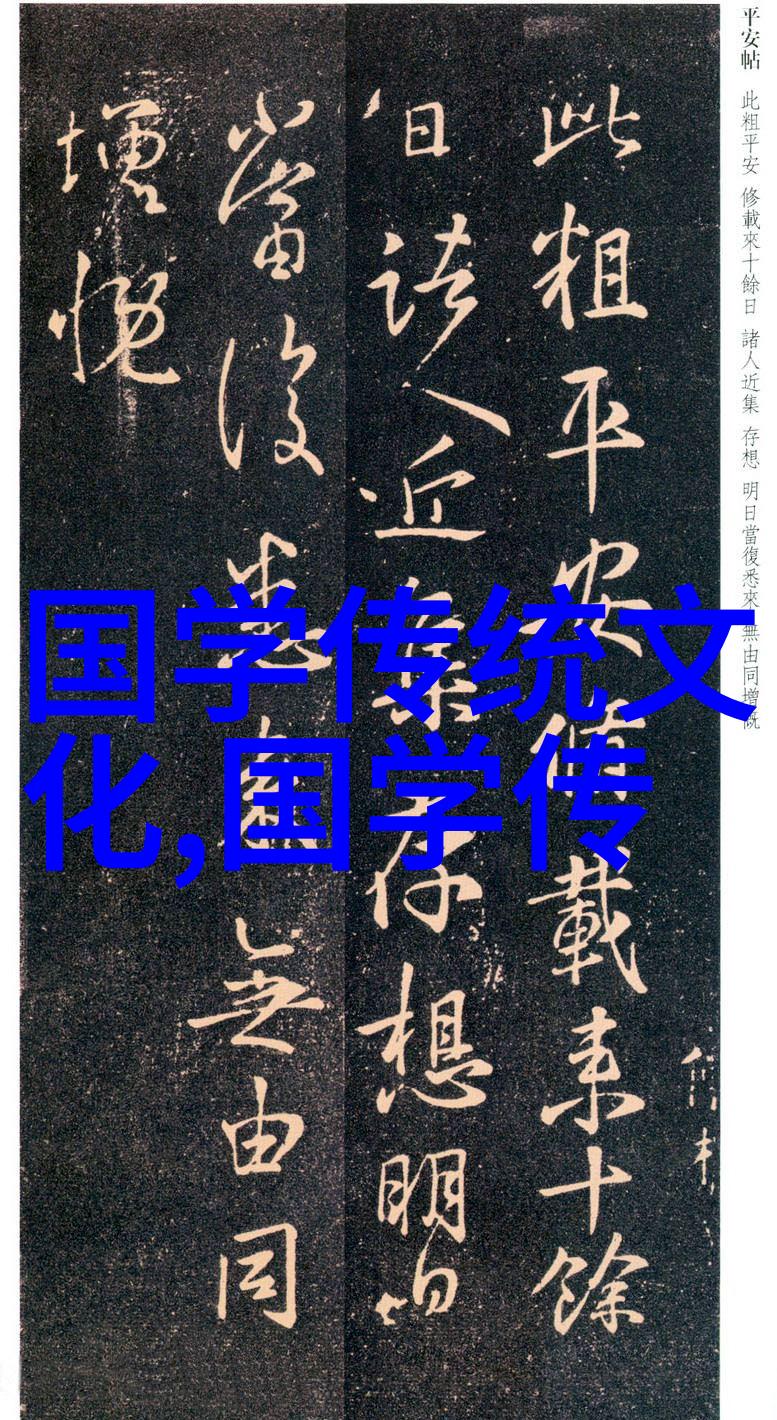 平安帖 此粗平安 修載來十餘日 諸人近集 存想 明日當復悉來 無由同增慨
此粗平安脩載来十餘
日諸人近集存想明日
當復悉來無由同
增慨
国学传统文
化,国学传